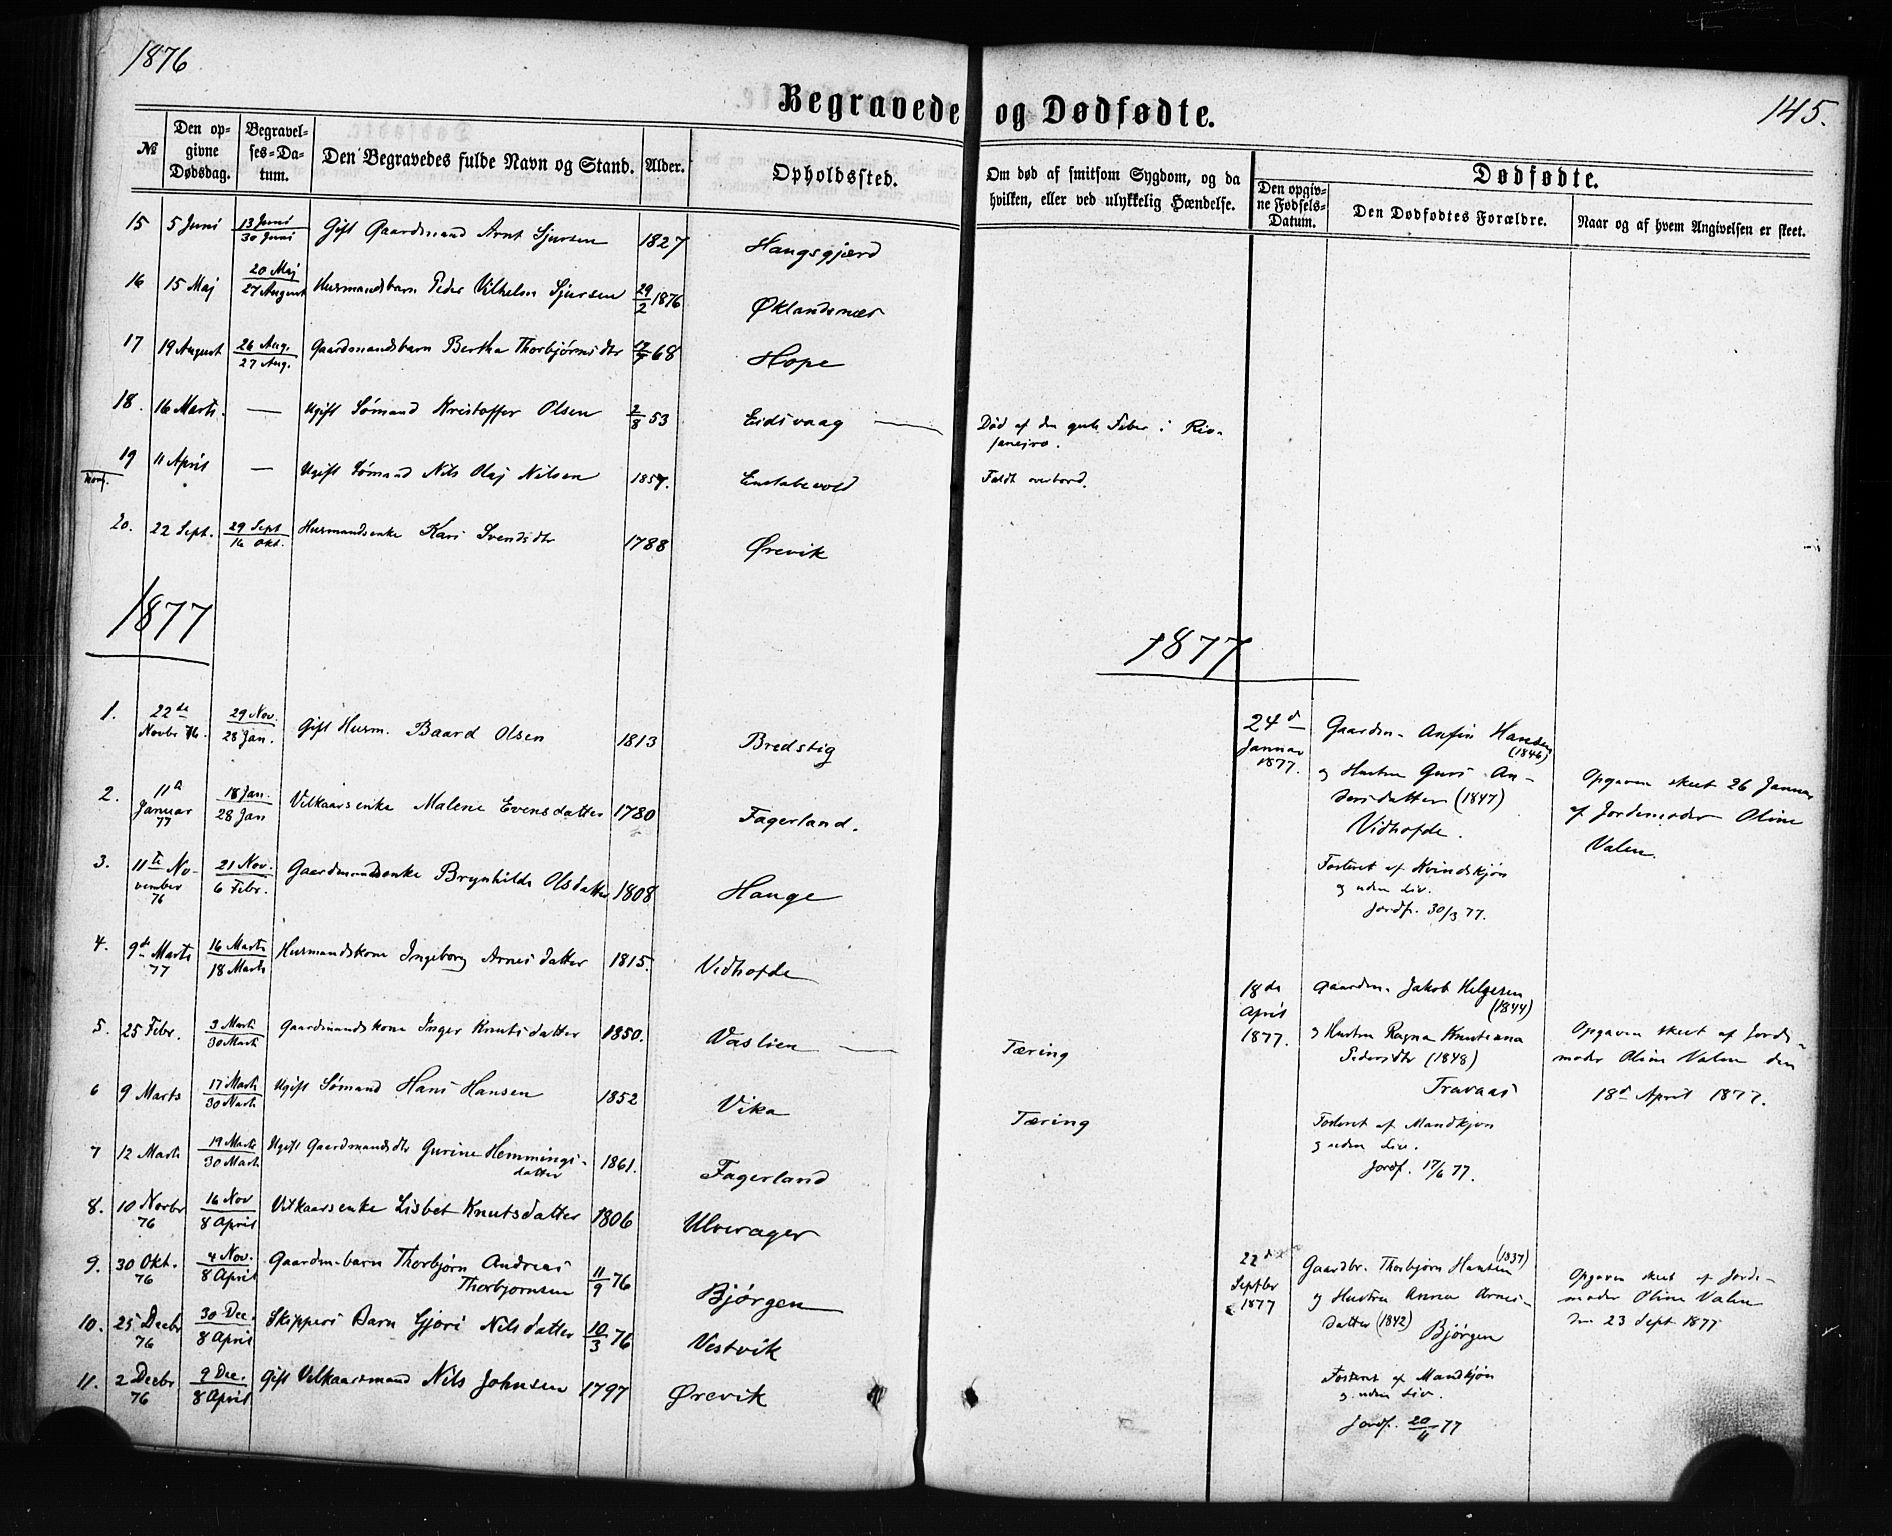 1876
Begravede og Dødfødte.
145.
№
Den opgivne Dødsdag.
Begravelses-Datum.
Den Begravedes fulde Navn og Stand.
Alder.
Opholdssted.
Om død af smitsom Sygdom, og da hvilken, eller ved ulykkelig Hændelse.
Dødfødte.
Den opgivne Fødsels-Datum.
Den Dødfødtes Forældre.
Naar og af hvem Angivelsen er skeet.
15 5 Juni 13 Juni / 30 Juni Gift Gaardmand Arnt Sjursen 1827 Haugsgjerd
16 15 Maj 20 Maj / 27 August Husmandsbarn Peder Vilhelm Sjursen 29/2 1876 Øklandsnær
17 19 August 26 Aug. / 27 Aug. Gaardmandsbarn Bertha Thorbjørnsdtr 68 Hope
18. 16 Marts. — Ugift Sømand Kristoffer Olsen 2/8 53 Eidsvaag — Død af den gule Feber i Rio-
janejro.
19 11 April — Ugift Sømand Nils Olaj Nilsen 1857. Enstabevold Faldt overbord.
20. 22 Sept. 29 Sept / 16 Okt. Husmandsenke Kari Svendsdtr 1788 Ørevik
1877
1877
1. 22de Novbr 76. 29 Nov. / 28 Jan. Gift Husm. Baard Olsen 1813 Bredstig
2. 11te Januar 77 18 Jan. / 28 Jan Vilkaarsenke Malene Evensdatter 1780 Fagerland.
3. 11te November 76 21 Nov. / 6 Febr. Gaardmandsenke Brynhilde Olsdatter 1808 Hauge
4. 9de Marts 77 16 Marts / 18 Marts Husmandskone Ingeborg Arnesdatter 1815. Vidhofde
5. 25 Febr. 3 Marts / 30 Marts Gaardmandskone Inger Knutsdatter 1850. Vaslien — Tæring
6 9 Marts 17 Marts / 30 Marts Ugift Sømand Hans Hansen 1852 Vika Tæring
7 12 Marts 19 Marts / 30 Marts Ugift Gaardmandsdtr Gurine Hemmings-
datter 1861. Fagerland
8. 10 Novbr 76 16 Nov / 8 April Vilkaarsenke Lisbet Knutsdatter 1806 Ulverager
9. 30 Okt. 76 4 Nov. / 8 April Gaardm.barn Thorbjørn Andreas
Thorbjørnsen 11/9 76 Bjørgen
10. 25 Decbr 76 30 Dec. / 8 April Skippers Barn Gjøri Nilsdatter 10/3 76 Vestvik
11. 2 Decbr 76 9 Dec. / 8 April Gift Vilkaarsmand Nils Johnsen 1797 Ørevik
24d Januar 1877.
Gaardm. Anfin Hansen
(1846)
og Hustru Guri An-
dersdatter (1847)
Vidhofde.
Fosteret af Kvindekjøn
og uden Liv.
Jordf. 30/3 77.
Opgaven skeet 26 Januar
af Jordemoder Oline
Valen.
18de April 1877.
Gaardm. Jakob Helgesen
(1844)
og Hustru Ragna Knutsana
Pedersdtr (1848)
Travaas
Fosteret af Mandkjøn
og uden Liv.
Jordf. 17/6 77.
Opgaven skeet af Jorde-
moder Oline Valen den
18d April 1877.
22d Septbr 1877
Gaardbr. Thorbjørn Hansen (1837)
og Hustru Anna Arnes-
datter (1842) Bjørgen
Fosteret af Mandkjøn
og uden Liv.
Jordf. 20/11 77
Opgaven skeet af Jorde-
moder Oline Valen
den 23 Sept 1877